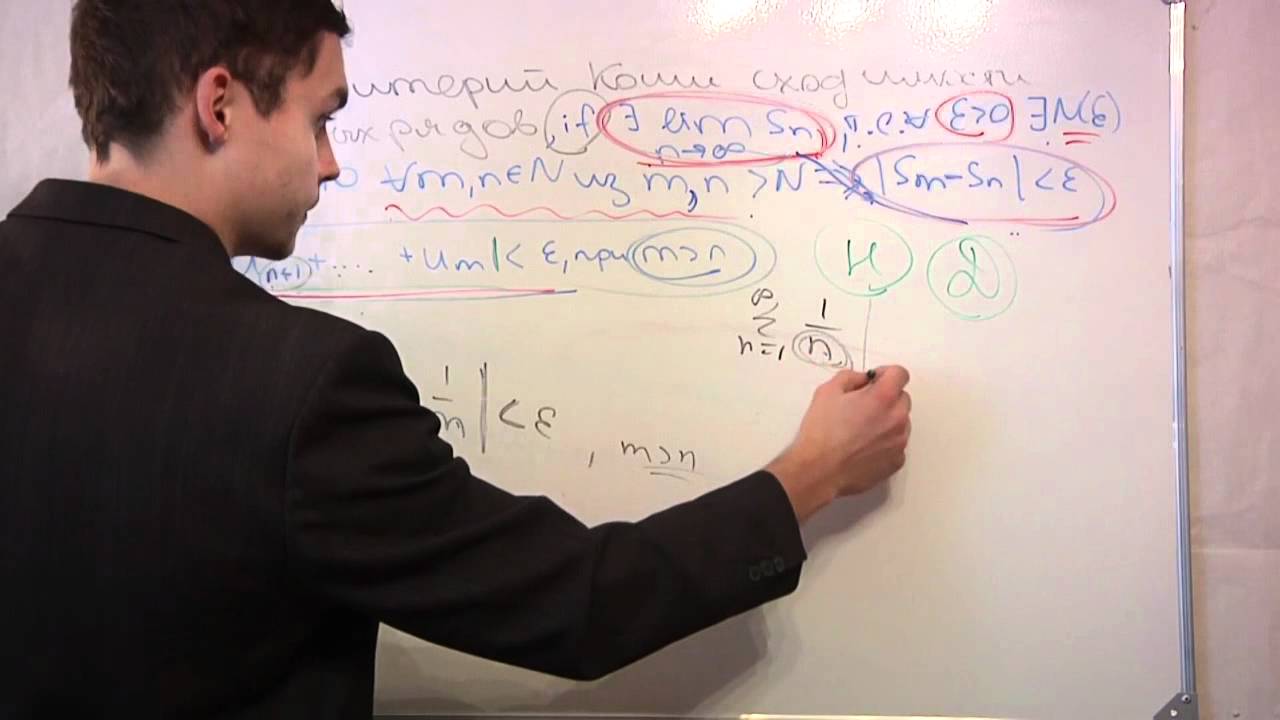 итерий Коши сходимости
ых рядов, if ∃ lim Sn, i.?.∀ ε>0 ∃N(ε)
n→∞
∀m,n∈N из m,n >N ⇒ |Sm-Sn|<ε
n+1 + .... + um|< ε, при m>n
И
∞
∑ 1/n
n=1
1/m | < ε , m>n